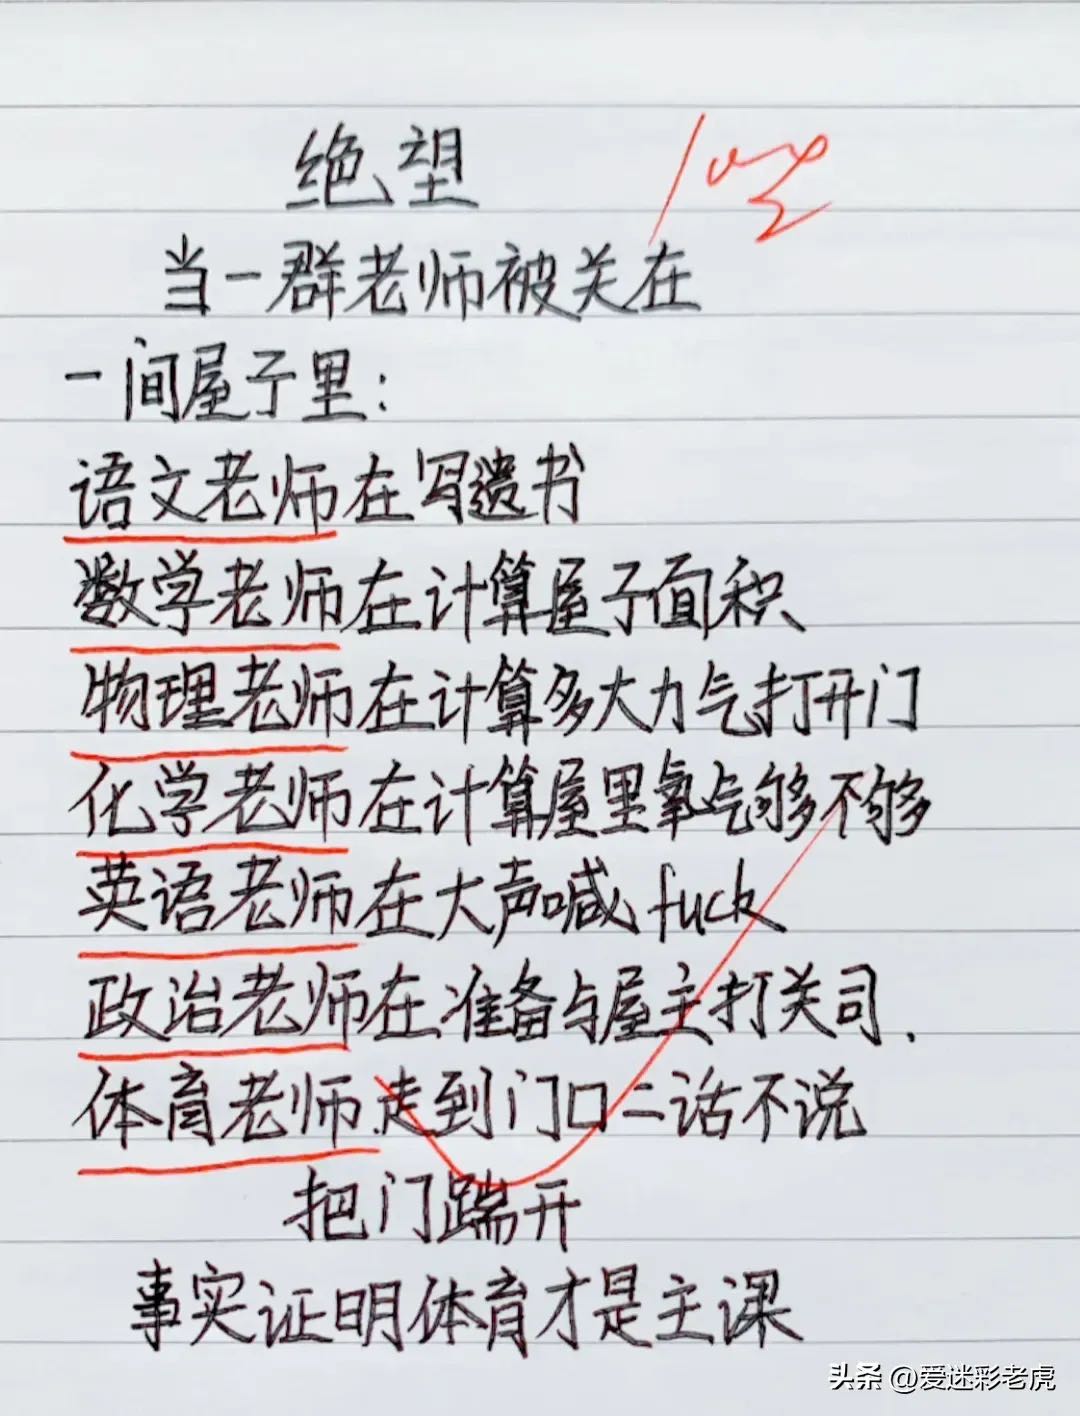 绝望
当一群老师被关在
一间屋子里：
语文老师在写遗书
数学老师在计算屋子面积
物理老师在计算多大力气打开门
化学老师在计算屋里氧气够不够
英语老师在大声喊fuck
政治老师在准备与屋主打关司.
体育老师走到门口二话不说
把门踹开
事实证明体育才是主课
头条 @爱迷彩老虎